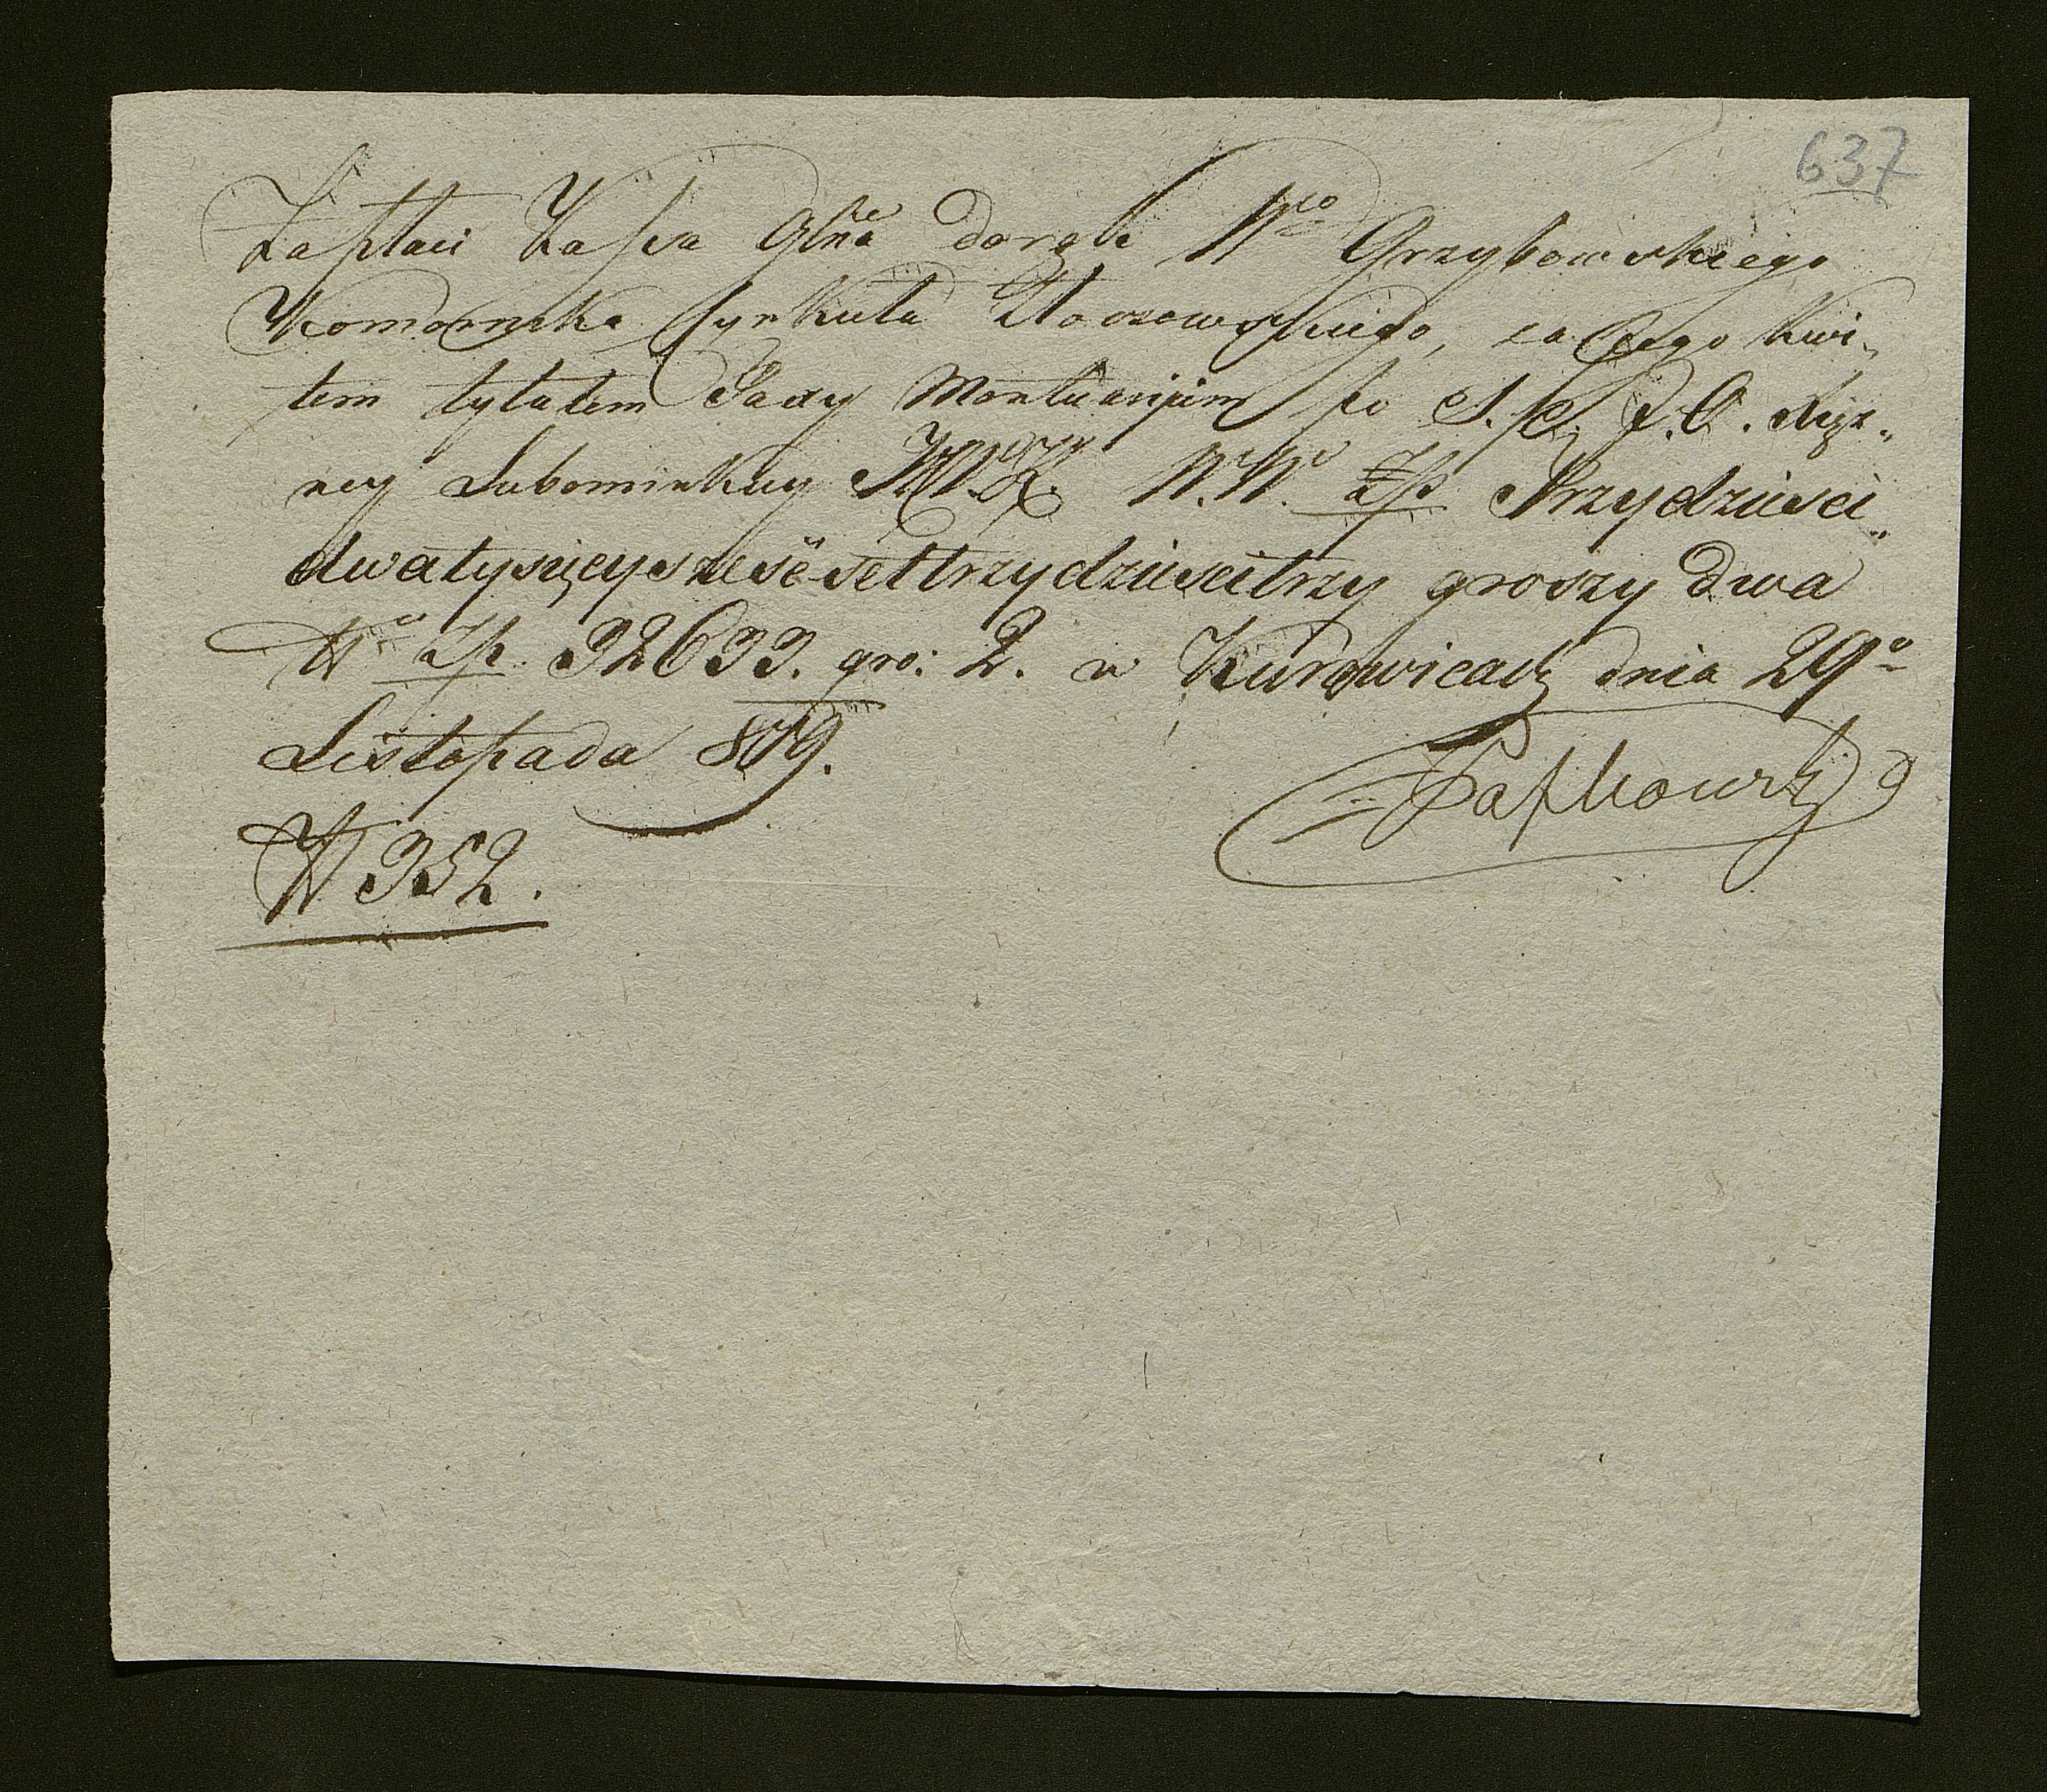 637
Zapłaci Kassa Głna do rąk Wgo Grzybowskiego
Komornika Cyrkułu Złoczowskiego, za Jego kwi-
tem tytułem Taxy Mortuarium po S. p. J. O. Xięż-
ney Lubomirskiey W. W. Złp Trzydzieści
dwa tysięcy sześć set trzydzieści trzy groszy dwa
No Złp. 32633. gro: 2. w Kurowicach dnia 29o
Listopada 809.
N 352.